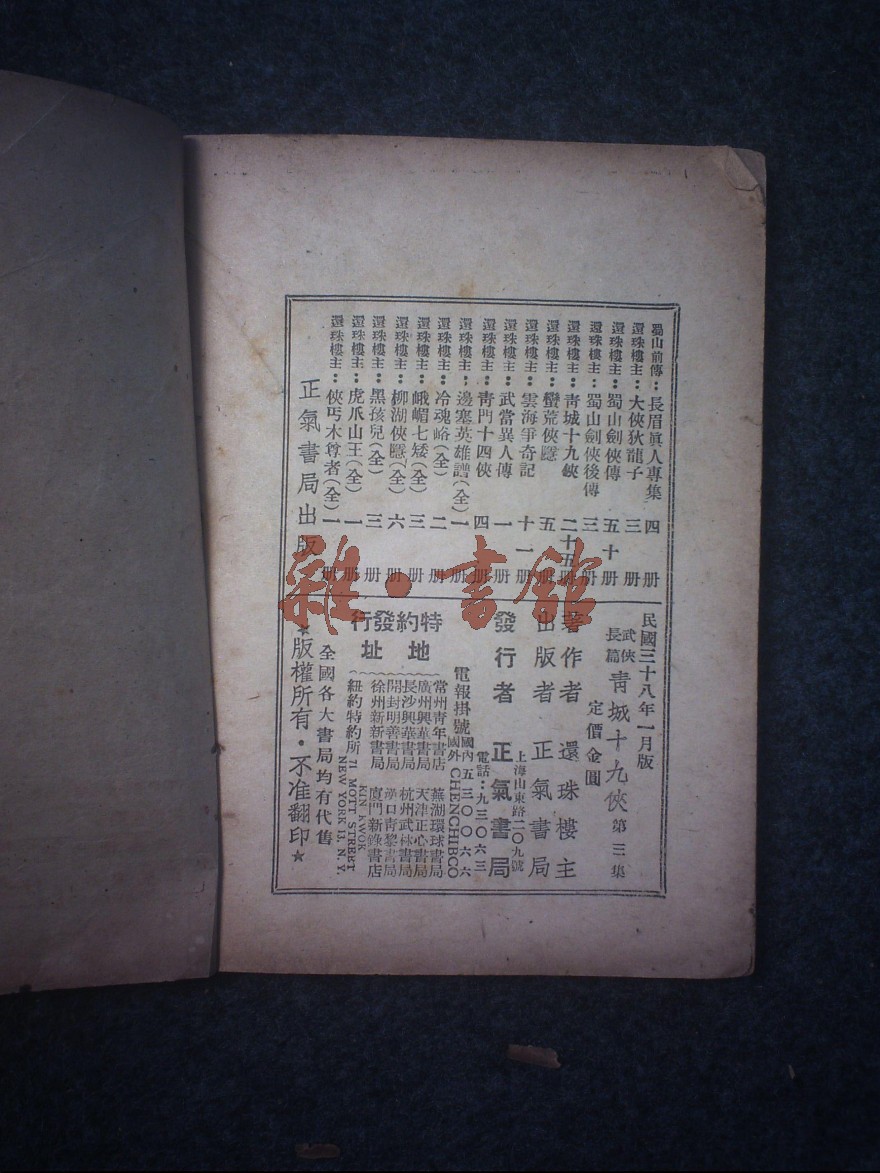 蜀山前傳：長眉眞人專集 四 册
還珠樓主：大俠狄龍子 三 册
還珠樓主：蜀山劍俠傳 五十 册
還珠樓主：蜀山劍俠後傳 三 册
還珠樓主：靑城十九俠 二十五 册
還珠樓主：蠻荒俠隱 五 册
還珠樓主：雲海爭奇記 十一 册
還珠樓主：武當異人傳 一 册
還珠樓主：靑門十四俠 四 册
還珠樓主：邊塞英雄譜(全) 一 册
還珠樓主：冷魂峪(全) 二 册
還珠樓主：峨嵋七矮(全) 三 册
還珠樓主：柳湖俠隱(全) 六 册
還珠樓主：黑孩兒(全) 三 册
還珠樓主：虎爪山王(全) 一 册
還珠樓主：俠丐木尊者(全) 一 册
正氣書局出版
民國三十八年一月版
武俠長篇 靑城十九俠 第三集
定價金圓
著作者 還珠樓主
出版者 正氣書局
上海山東路二〇九號
發行者 正氣書局
電話：九三〇六三
電報掛號 國內五三〇〇六六
國外 CHENCHIBCO
特約發行
地址
常州靑年書店 蕪湖環球書局
廣州興華書局 天津正心書局
長沙興華書局 杭州武林書局
開封明善書局 漢口靑黎書局
徐州新新書局 廈門新錄書店
紐約特約所 KIN KWOK
71 MOTT STREET
NEW YORK 13, N.Y.
全國各大書局均有代售
★版權所有·不准翻印★
雜·書館